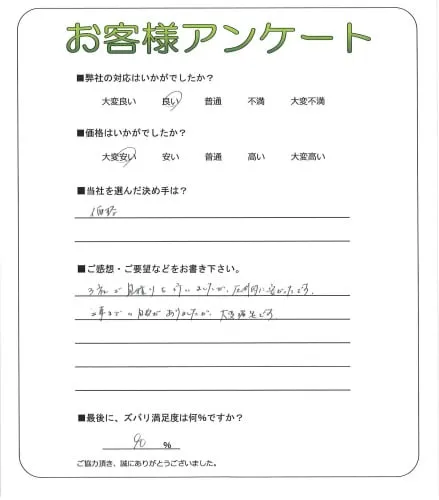 お客様アンケート
■弊社の対応はいかがでしたか?
大変良い 良い 普通 不満 大変不満
■価格はいかがでしたか?
大変安い 安い 普通 高い 大変高い
■当社を選んだ決め手は?
価格
■ご感想・ご要望などをお書き下さい。
3社で見積りを行いましたが、圧倒的に安かったです。
工事までの日数がありましたが、大変満足です
■最後に、ズバリ満足度は何%ですか?
90 %
ご協力頂き、誠にありがとうございました。